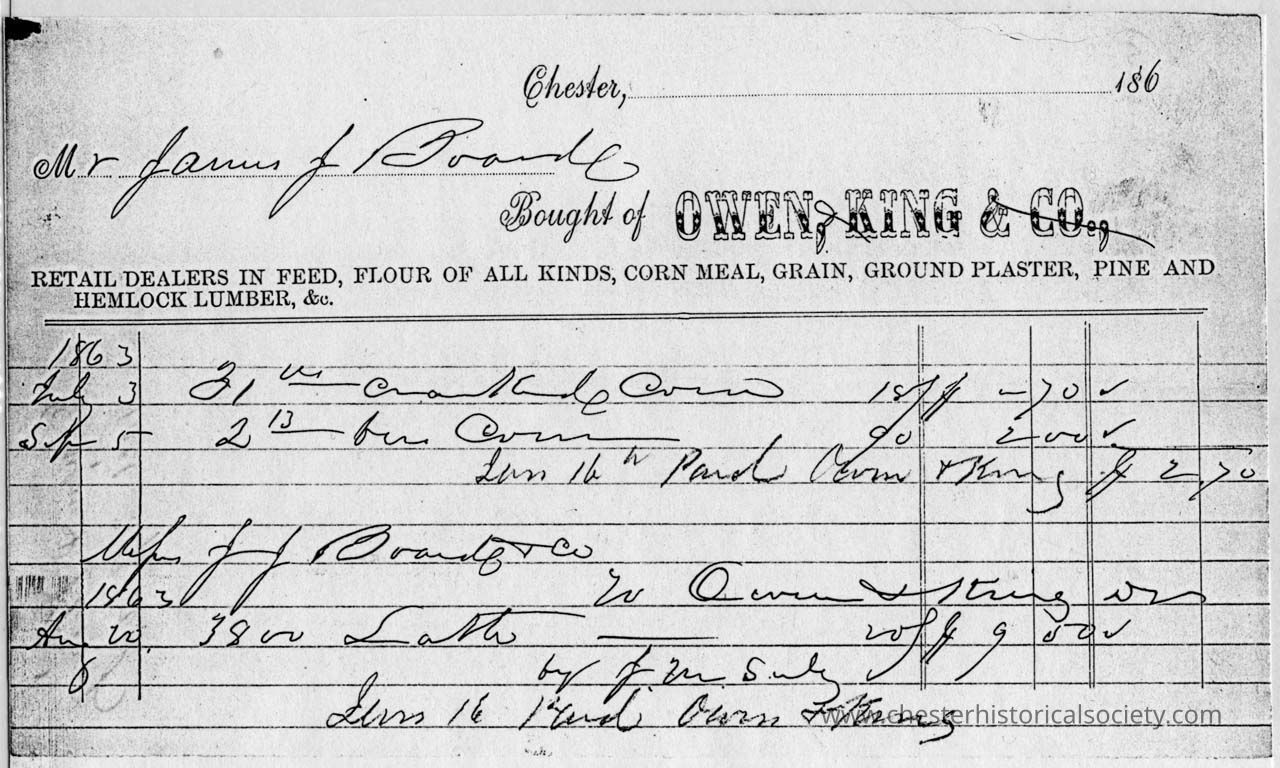 Chester, 186
Mr James J Board
Bought of OWEN, KING & CO.,
RETAIL DEALERS IN FEED, FLOUR OF ALL KINDS, CORN MEAL, GRAIN, GROUND PLASTER, PINE AND
HEMLOCK LUMBER, &c.
1863
July 3 31 lbs Corn 18/ $ 70
Sep 5 2 Corn 90 2 00
16 Paid Owen & King $ 2,70
J J Board & Co
1863 To Owen & King Dr
Aug 20 3800 Lath 20/ $ 9 50
by J. M.
16 Paid Owen & King
www.chesterhistoricalsociety.com